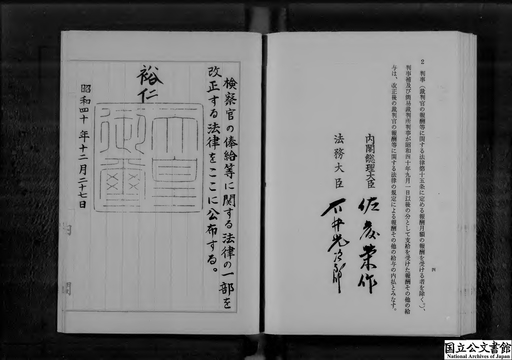 2 判事(裁判官の報酬等に関する法律第十五条に定める報酬月額の報酬を受ける者を除く。)、
判事補及び簡易裁判所判事が昭和四十年九月一日以後の分として支給を受けた報酬その他の給
与は、改正後の裁判官の報酬等に関する法律の規定による報酬その他の給与の内払とみなす。
四
内閣総理大臣 佐藤榮作
法務大臣 石井光次郎
検察官の俸給等に関する法律の一部を
改正する法律をここに公布する。
裕仁
天皇御璽
昭和四十年十二月二十七日
国立公文書館
National Archives of Japan